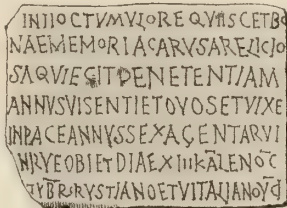 INHOCTVMVLOREQVIISCETBO
NAEMEMORIACARVSARELICIO
SAQVIEGITPENETENTIAM
ANNVSVISENTIETOVOSETVIXE
INPACEANNVSSEXAGENTARVI
NRVEOBIETDIAEXIIIKALENOC
TVBRSRVSTIANOETVITALIANOVC